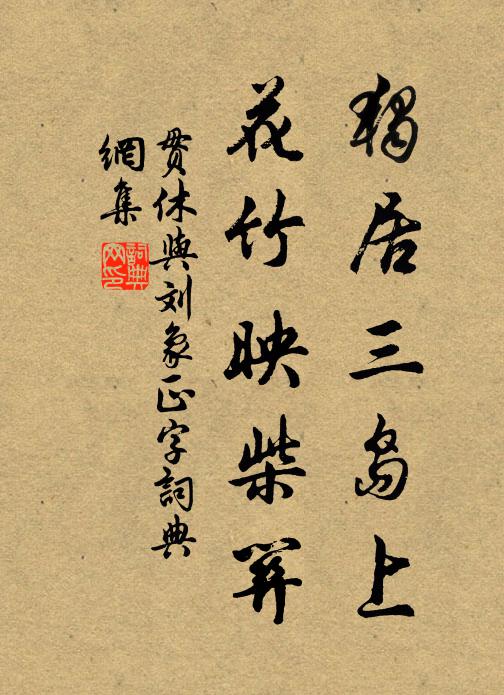 獨居三島上
花竹映柴關
貫休與刘象正字詞典
網集
詞典
网印